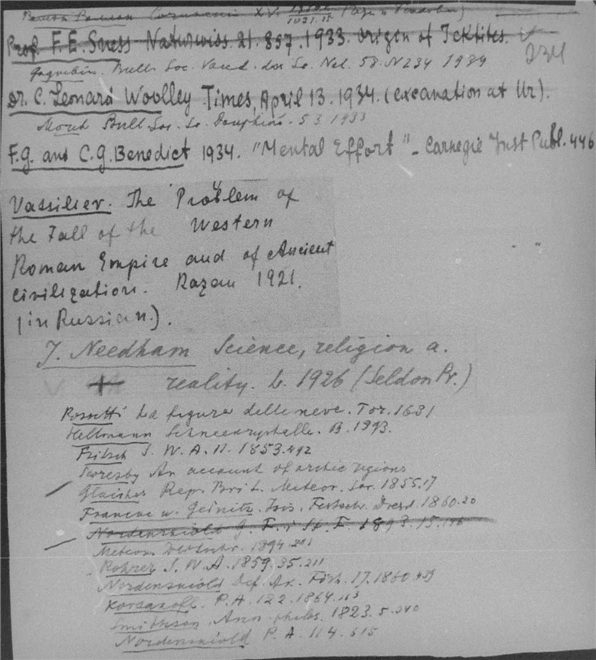 Prof. F.E. Suess Naturwiss. 21. 857. 1933. origin of Tektites.
234
Bull. Soc. Vaud. Nat. 58. N 234 1934
Dr. C. Leonard Woolley Times, April 13. 1934. (excavation at Ur).
Bull Soc. Sc. Dauphiné. 53 1933
F.g. and C.g. Benedict 1934. "Mental Effort" - Carnegie Inst Publ. 446
Vassiliev. The Problem of
the Fall of the Western
Roman Empire and of Ancient
Civilization. Kazan 1921.
(in Russian.).
J. Needham Science, religion a.
reality. L. 1926 (Seldon Pr.)
Rossetti La figura della neve. Tor. 1681
Hellmann Schneecrystalle. B. 1893.
Fritsch S. W. A. 1853. 492
Scoresby An account of arctic regions
Glaisher Rep. Brit. Meteor. Soc. 1855. 17
Geinitz. Isis. Festschr. Dresd. 1860. 20
Nordenskiöld G. F. i St. F. 1893. 15. 146
Meteor. Zeitschr. 1894.
Rohrer S. W. A. 1859. 35. 211
Nordenskiöld Öf. Ak. Förh. 17. 1860. 439
P. A. 122. 1864. 163
Smithson Ann. philos. 1823. 5. 340
Nordenskiöld P. A. 114. 615